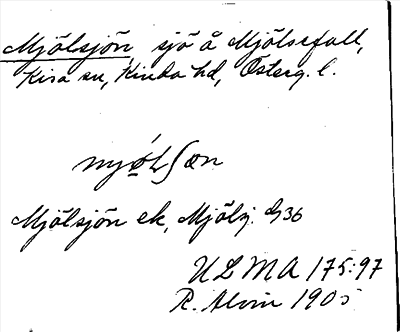 Mjölsjön, sjö å Mjölsefall,
Kisa sn, Kinda hd, Österg. l.
Mjölsjön ek, Mjölsj. G36
ULMA 175:97
R. Alvin 1905